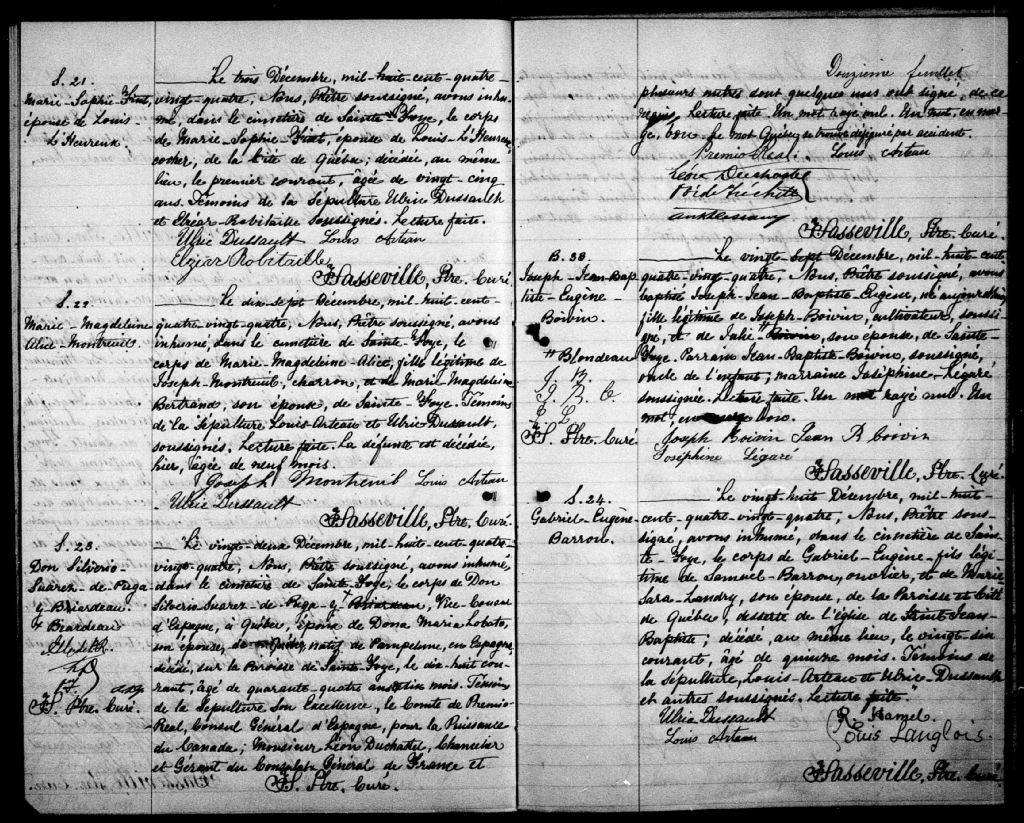 S. 21.
Marie-Sophie-Fiset,
épouse de Louis
L'Heureux.
Le trois Décembre, mil-huit-cent-quatre-
vingt-quatre, Nous, Prêtre soussigné, avons inhu-
mé, dans le cimetière de Sainte-Foye, le corps
de Marie-Sophie-Fiset, épouse de Louis-L'Heureux
cocher, de la Cité de Québec; décédée, au même
lieu, le premier courant, âgée de vingt-cinq
ans. Témoins de la sépulture Ulric Dussault
et Elzéar-Robitaille soussignés. Lecture faite.
Ulric Dussault Louis Arteau
Elzéar Robitaille
Sasseville, Ptre. Curé.
S. 22.
Marie-Magdeleine
Alice-Montreuil.
Le dix-sept Décembre, mil-huit-cent-
quatre-vingt-quatre, Nous, Prêtre soussigné, avons
inhumé, dans le cimetière de Sainte-Foye, le
corps de Marie-Magdeleine-Alice, fille légitime de
Joseph-Montreuil, charron, et de Marie-Magdeleine
Bertrand, son épouse, de Sainte-Foye. Témoins
de la Sépulture Louis-Arteau et Ulric-Dussault,
soussignés. Lecture faite. La défunte est décédée,
hier, âgée de neuf mois.
Joseph Montreuil Louis Arteau
Ulric Dussault
Sasseville, Ptre. Curé.
S. 23.
Don Silverio-
Suarez-de-Puga-
y Briardeau.
Briardeau
S. Ptre. Curé.
Le vingt-deux Décembre, mil-huit-cent-quatre-
vingt-quatre, Nous, Prêtre soussigné, avons inhumé,
dans le cimetière de Sainte-Foye, le corps de Don
Silverio-Suarez-de-Puga-y-Briardeau, Vice-Consul
d'Espagne, à Québec, époux de Dona Maria Lobato,
son épouse, de Québec natif de Pampelune, en Espagne,
décédé, sur la Paroisse de Sainte-Foye, le dix-huit cou-
rant, âgé de quarante-quatre ans et dix mois. Témoins
de la Sépulture Son Excellence, le Comte de Premio-
Real, Consul Général d'Espagne, pour la Puissance
du Canada; Monsieur Léon Duchatel, Chancelier
et Gérant du Consulat Général de France et
S. Ptre. Curé.
Douzième feuillet
plusieurs autres dont quelques uns ont signé, de ce
requis. Lecture faite. Un mot rayé nul. Un mot, en mar-
ge, bon. Le mot Québec se trouve défiguré par accident.
Premio Real. Louis Arteau
Léon Duchatel
Sasseville, Ptre. Curé.
B. 38.
Joseph-Jean-Bap-
tiste-Eugène-
Boivin.
# Blondeau
J. B.
J. B. B.
J. L.
S. Ptre. Curé
Le vingt-sept Décembre, mil-huit-cent-
quatre-vingt-quatre, Nous, Prêtre soussigné, avons
baptisé Joseph-Jean-Baptiste-Eugène, né aujourd'hui,
fils légitime de Joseph-Boivin, cultivateur, soussi-
gné, et de Julie # Boivin, son épouse, de Sainte-
Foye. Parrain Jean-Baptiste-Boivin, soussigné,
oncle de l'enfant; marraine Joséphine-Légaré
soussignée. Lecture faite. Un mot rayé nul. Un
mot, en marge bon.
Joseph Boivin Jean B boivin
Joséphine Légaré
Sasseville, Ptre. Curé.
S. 24.
Gabriel-Eugène-
Barron.
Le vingt-huit Décembre, mil-huit-
cent-quatre-vingt-quatre, Nous, Prêtre sous-
signé, avons inhumé, dans le cimetière de Sain-
te-Foye, le corps de Gabriel-Eugène-fils légi-
time de Samuel-Barron, ouvrier, et de Marie
Sara-Landry, son épouse, de la Paroisse et Cité
de Québec, desserte de l'église de Saint-Jean-
Baptiste; décédé, au même lieu, le vingt-six
courant, âgé de quinze mois. Témoins de
la sépulture, Louis-Arteau et Ulric-Dussault
et autres soussignés. Lecture faite.
Ulric Dussault R. Hamel.
Louis Arteau Louis Langlois.
Sasseville, Ptre. Curé